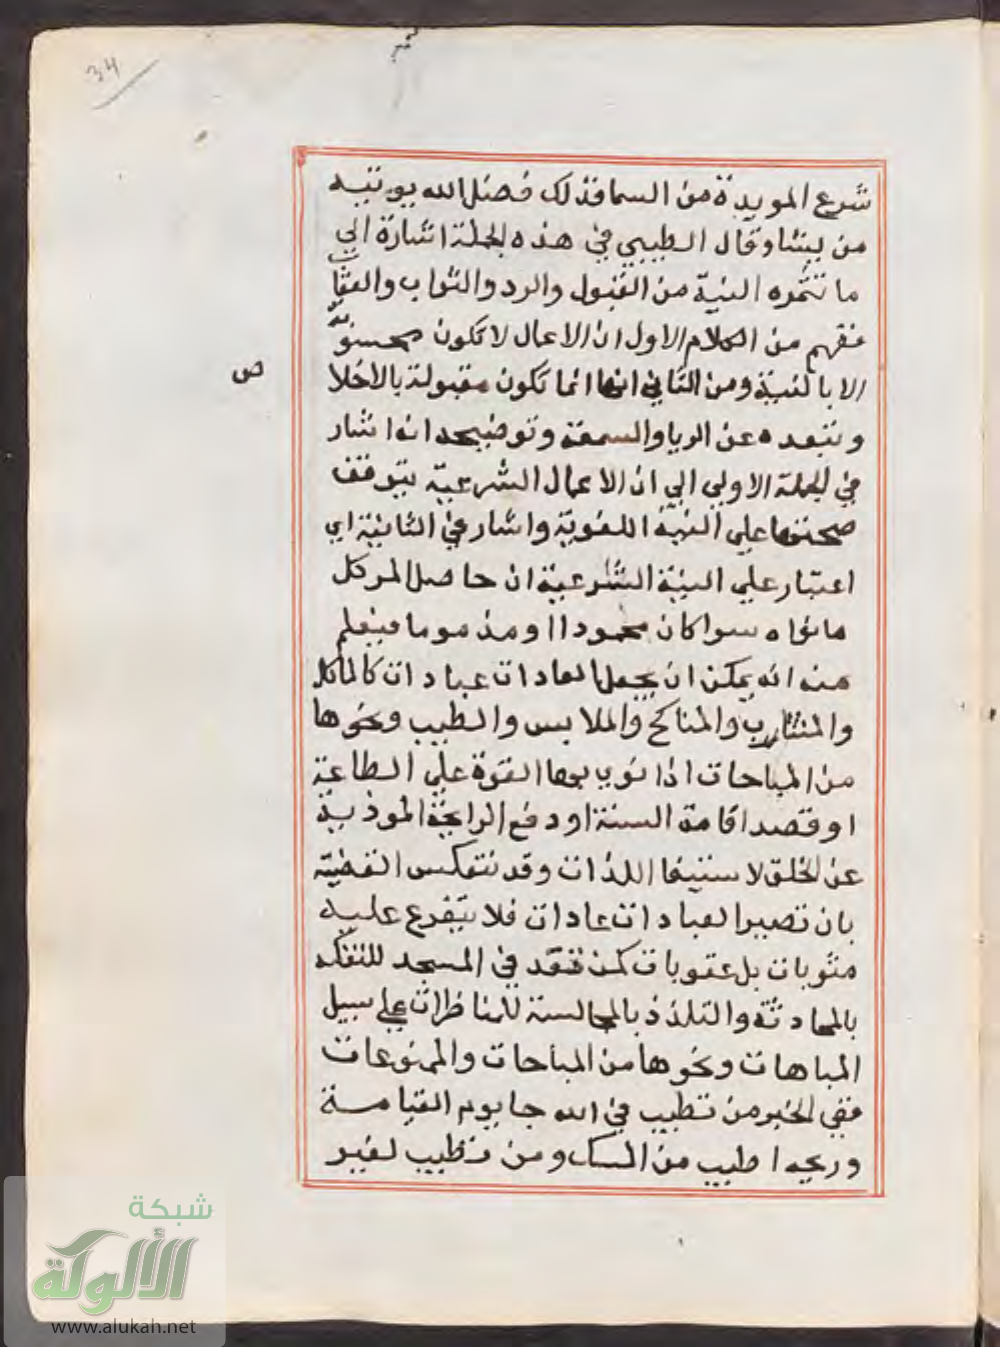 34
شرع المويدة من السما فذلك فضل الله يوتيه
من يشا وقال الطيبي في هذه الجملة اشارة الي
ما تثمره النية من القبول والرد والثواب والعقاب
ففهم من الكلام الاول ان الاعمال لا تكون محسوبة
الا بالنية ومن الثاني انها انما تكون مقبولة بالاخلا
ص
وتبعده عن الريا والسمعة وتوضيحه انه اشار
في الجملة الاولي الي ان الاعمال الشرعية يتوقف
صحتها علي النية اللغوية واشار في الثانية اي
اعتبار علي النية الشرعية ان حاصل امر كل
ما نواه سوا كان محمودا او مذموما فيعلم
منه انه يمكن ان يجعل العادات عبادات كالماكل
والمشارب والمناكح والملابس والطيب ونحوها
من المباحات اذا نوي بها القوة علي الطاعة
او قصد اقامة السنة او دفع الرايحة الموذية
عن الخلق لا ستيفا اللذات وقد تنعكس القضية
بان تصير العبادات عادات فلا يتفرع عليه
مثوبات بل عقوبات كمن قعد في المسجد للتفكه
بالمحادثة والتلذذ بالمجالسة للمناظرات علي سبيل
المباهات ونحوها من المباحات والممنوعات
ففي الخبر من تطيب في الله جا يوم القيامة
وريحه اطيب من المسك ومن تطيب لغير
شبكة
الألوكة
www.alukah.net